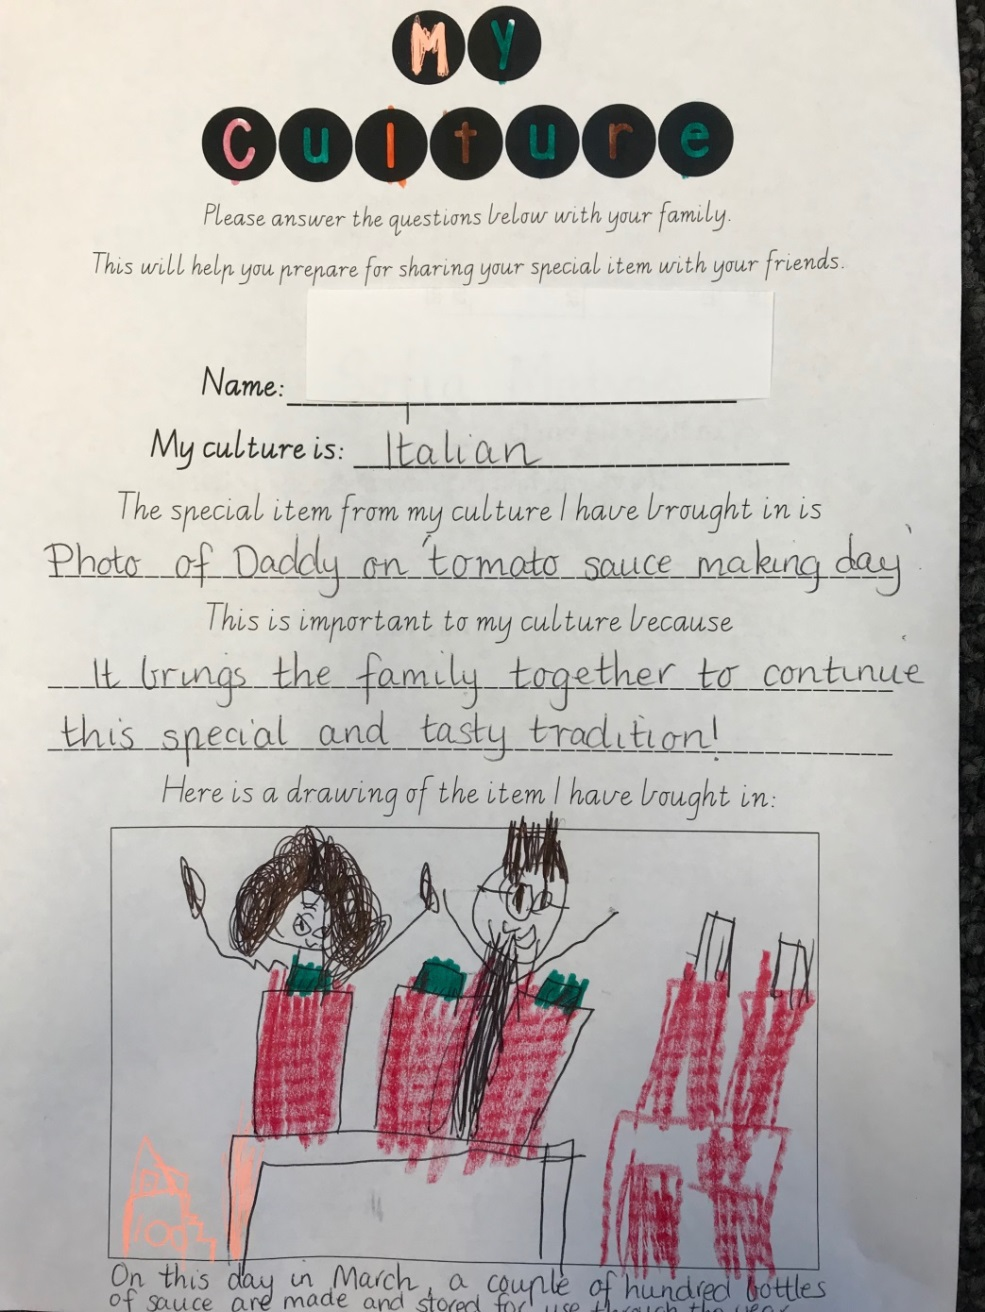 My
Culture
Please answer the questions below with your family.
This will help you prepare for sharing your special item with your friends.
Name:
My culture is: Italian
The special item from my culture I have brought in is
Photo of Daddy on 'tomato sauce making day'
This is important to my culture because
It brings the family together to continue
this special and tasty tradition!
Here is a drawing of the item I have bought in:
On this day in March, a couple of hundred bottles
of sauce are made and stored for use through the year